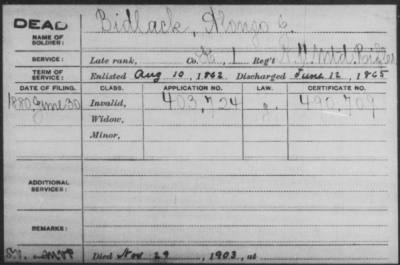 DEAD
NAME OF SOLDIER: Bidlack, Alonzo C.
SERVICE: Late rank, Co. G, 1 Reg't N.Y. Mtd. Rifles
TERM OF SERVICE: Enlisted Aug 10, 1862 Discharged June 12, 1865
DATE OF FILING. CLASS. APPLICATION NO. LAW. CERTIFICATE NO.
1880 June 30 Invalid, 403,724 g. 490,709
Widow,
Minor,
ADDITIONAL SERVICES:
REMARKS:
Died Nov 29, 1903, at